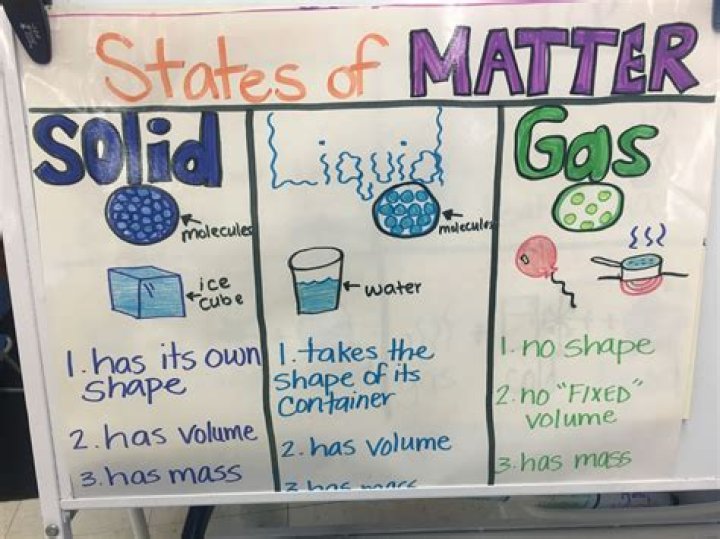 States of MATTER
Solid
molecules
ice
cube
1. has its own
shape
2. has volume
3. has mass
Liquid
molecules
water
1. takes the
shape of its
container
2. has volume
3. has mass
Gas
1. no shape
2. no "FIXED"
volume
3. has mass